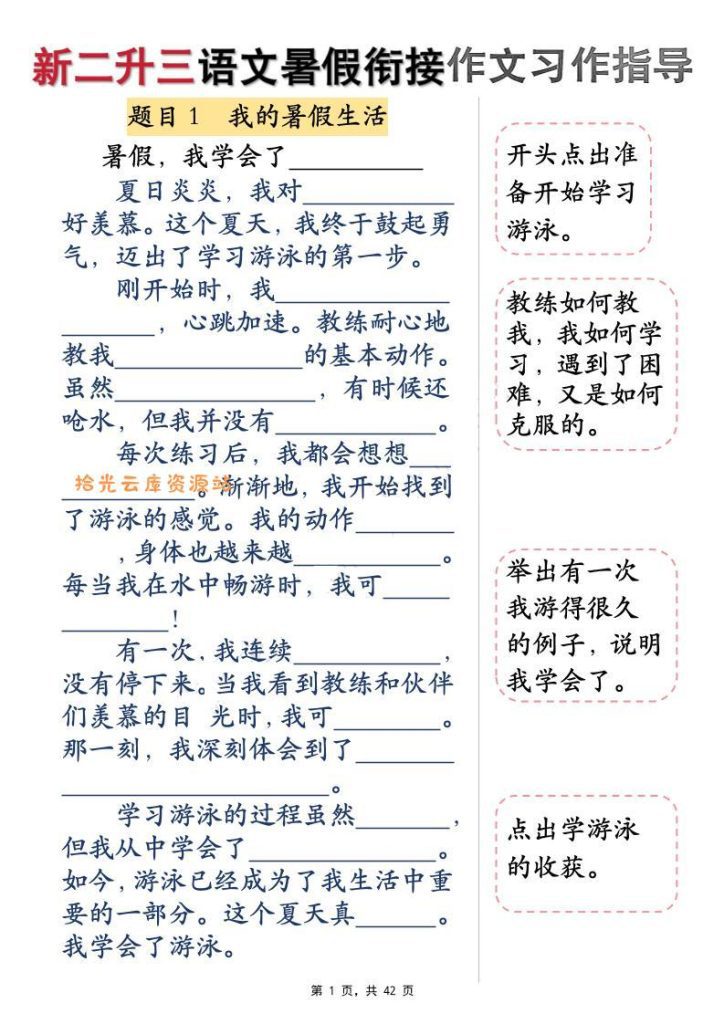 新二升三语文暑假衔接作文习作指导
题目1 我的暑假生活
暑假，我学会了__________
夏日炎炎，我对___________
好羡慕。这个夏天，我终于鼓起勇
气，迈出了学习游泳的第一步。
刚开始时，我_____________
_______，心跳加速。教练耐心地
教我________________的基本动作。
虽然_______________，有时候还
呛水，但我并没有____________。
每次练习后，我都会想想___
__________。渐渐地，我开始找到
拾光云库资源站
了游泳的感觉。我的动作_______
，身体也越来越___________。
每当我在水中畅游时，我可_____
________！
有一次，我连续___________，
没有停下来。当我看到教练和伙伴
们羡慕的目 光时，我可________。
那一刻，我深刻体会到了_______
____________________。
学习游泳的过程虽然_______，
但我从中学会了______________。
如今，游泳已经成为了我生活中重
要的一部分。这个夏天真______。
我学会了游泳。
开头点出准
备开始学习
游泳。
教练如何教
我，我如何学
习，遇到了困
难，又是如何
克服的。
举出有一次
我游得很久
的例子，说明
我学会了。
点出学游泳
的收获。
第 1 页，共 42 页